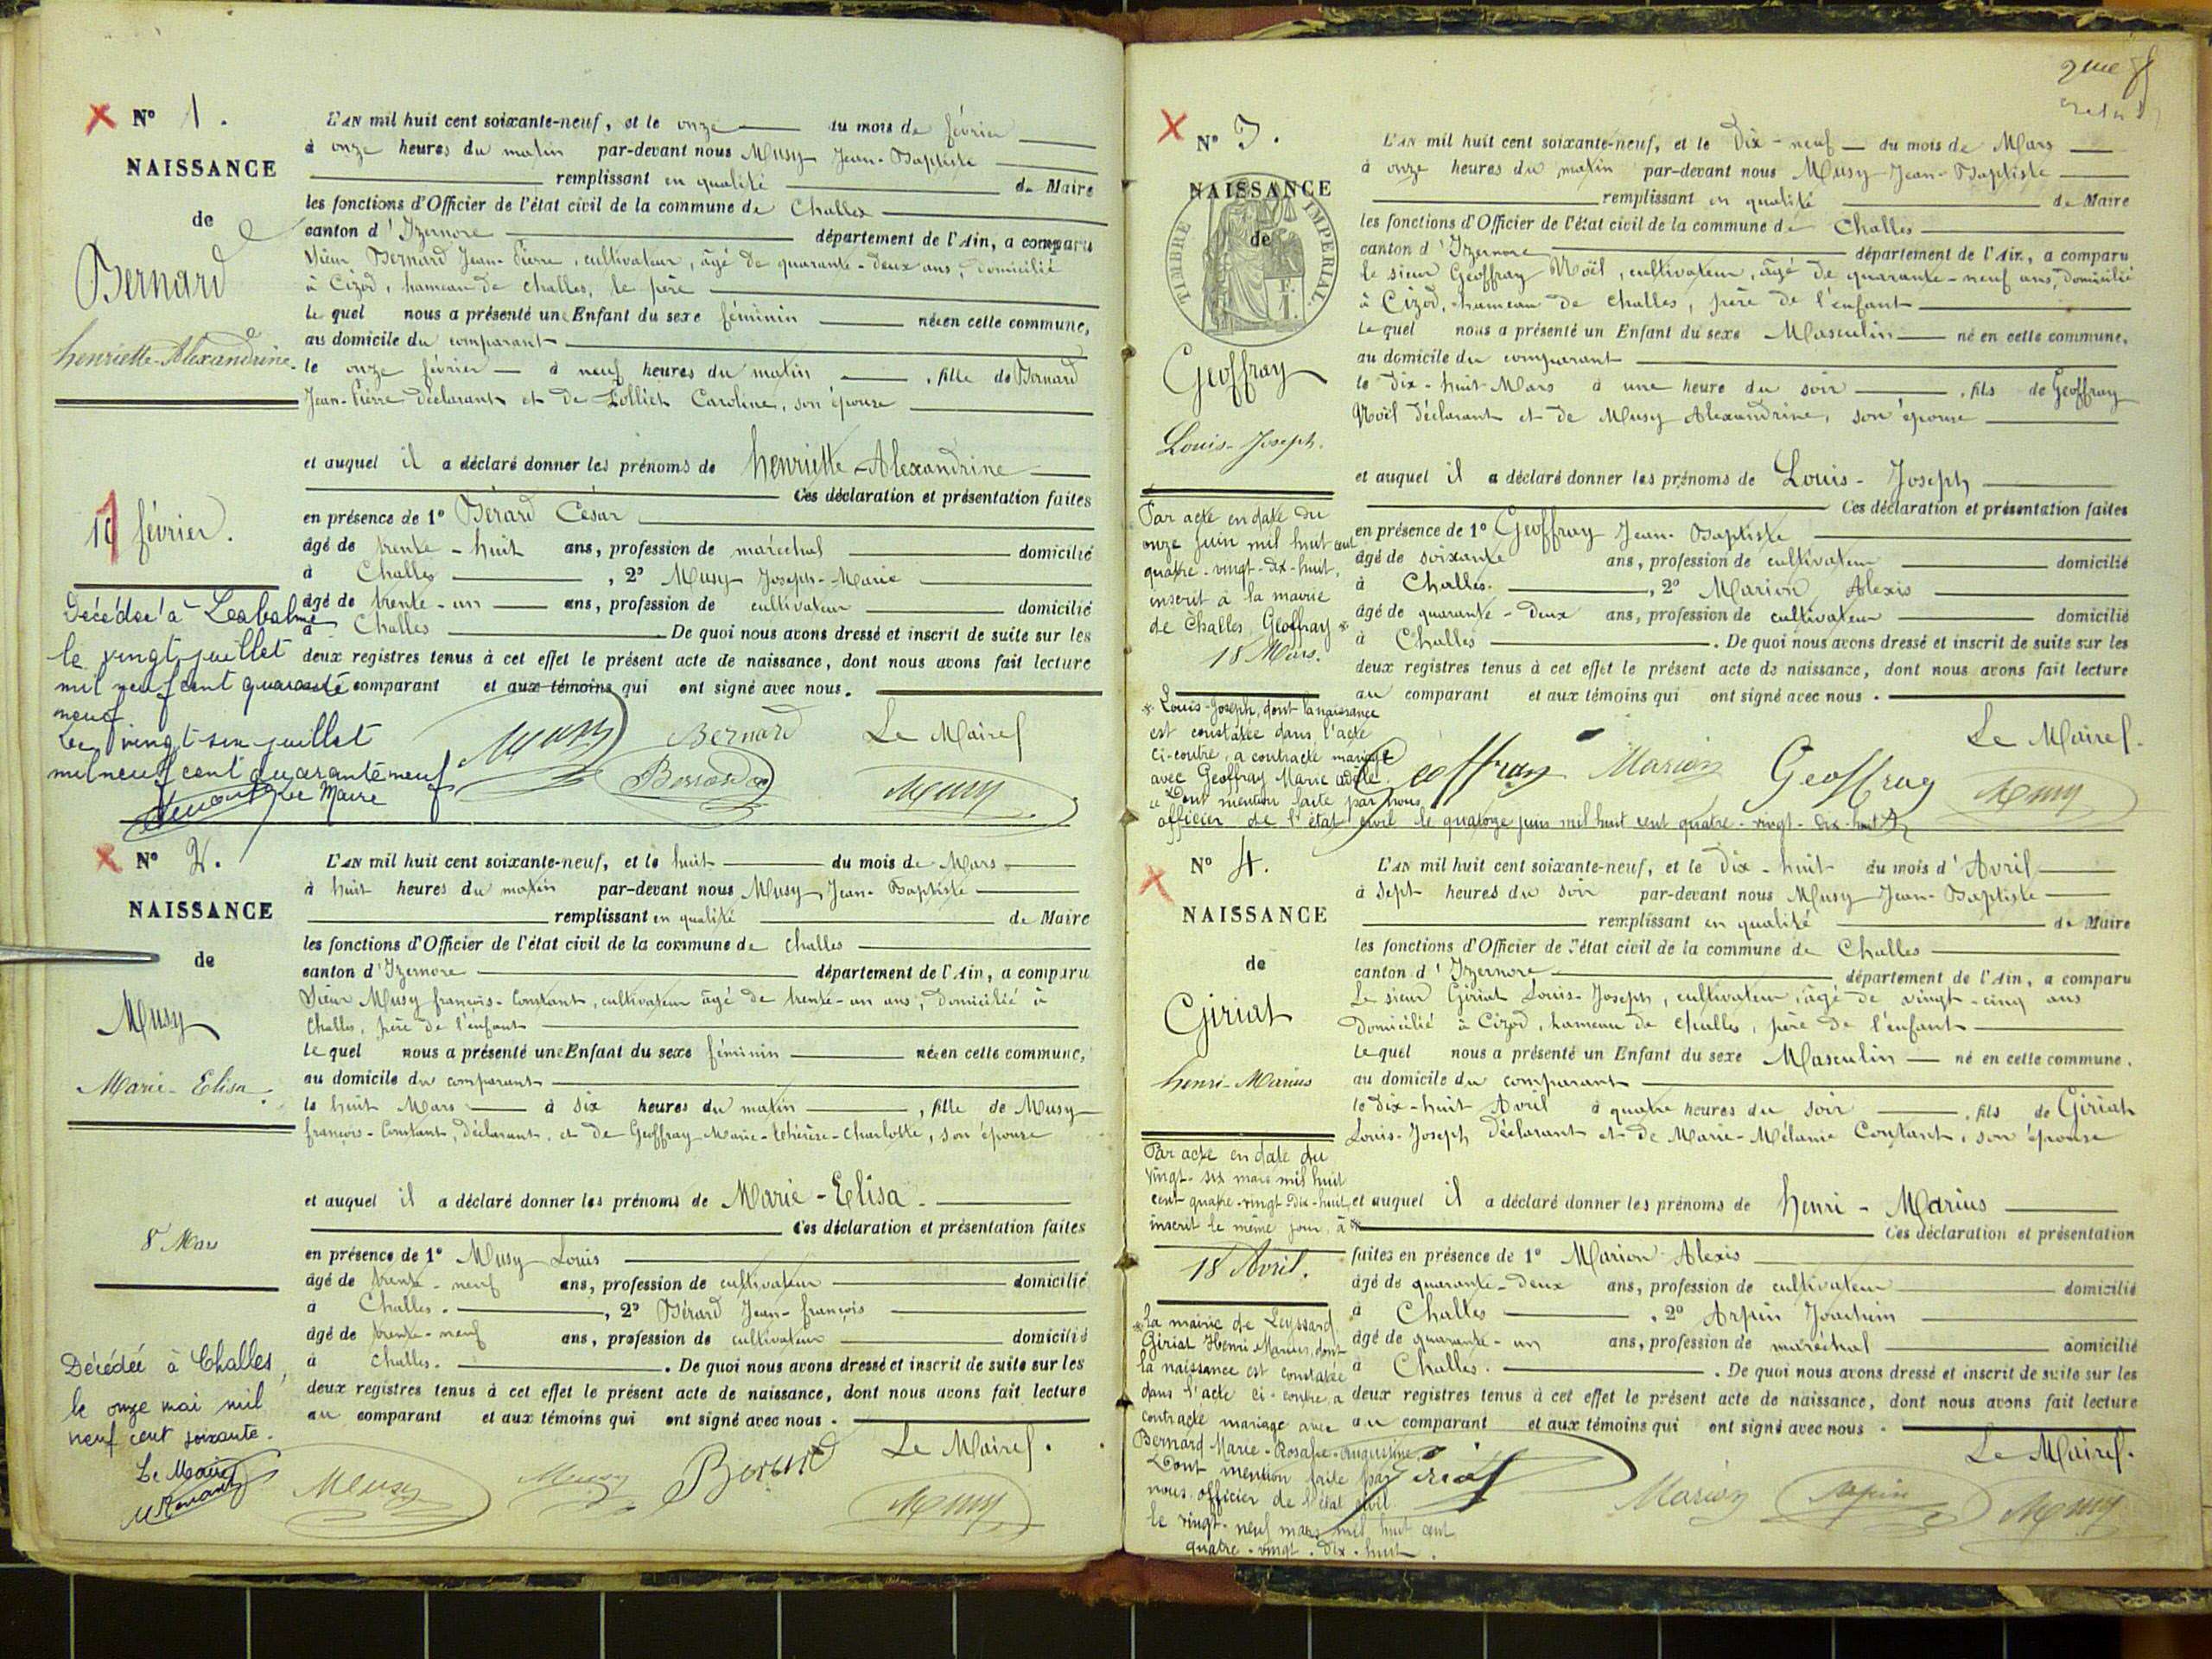 N° 1.
NAISSANCE
de
Bernard
henriette-Alexandrine.
11 février.
Décédée à Leabalme
le vingt juillet
mil neuf cent quarante
neuf
Le vingt six juillet
mil neuf cent quarante neuf
Le Maire
L'AN mil huit cent soixante-neuf, et le onze du mois de février
à onze heures du matin par-devant nous Musy Jean-Baptiste
remplissant en qualité de Maire
les fonctions d'Officier de l'état civil de la commune de Challes
canton d'Izernore département de l'Ain, a comparu
Sieur Bernard Jean-Pierre, cultivateur, âgé de quarante-deux ans, domicilié
à Cizod, hameau de Challes, le père
lequel nous a présenté une Enfant du sexe féminin née en cette commune,
au domicile du comparant
le onze février à neuf heures du matin, fille de Bernard
Jean-Pierre déclarant et de Lolliet Caroline, son épouse
et auquel il a déclaré donner les prénoms de henriette-Alexandrine
Ces déclaration et présentation faites
en présence de 1° Bérard César
âgé de trente-huit ans, profession de maréchal domicilié
à Challes, 2° Musy Joseph-Marie
âgé de trente-un ans, profession de cultivateur domicilié
à Challes De quoi nous avons dressé et inscrit de suite sur les
deux registres tenus à cet effet le présent acte de naissance, dont nous avons fait lecture
comparant et aux témoins qui ont signé avec nous.
Musy Bernard Le Maire
Musy
N° 2.
NAISSANCE
de
Musy
Marie-Elisa.
8 Mars
Décédée à Challes,
le onze mai mil
neuf cent soixante.
Le Maire
L'AN mil huit cent soixante-neuf, et le huit du mois de Mars
à huit heures du matin par-devant nous Musy Jean-Baptiste
remplissant en qualité de Maire
les fonctions d'Officier de l'état civil de la commune de Challes
canton d'Izernore département de l'Ain, a comparu
Sieur Musy françois-Constant, cultivateur âgé de trente-un ans, domicilié à
Challes, père de l'enfant
lequel nous a présenté une Enfant du sexe féminin née en cette commune,
au domicile du comparant
le huit Mars à six heures du matin, fille de Musy
françois-Constant, déclarant, et de Geoffray Marie-thérèse-Charlotte, son épouse
et auquel il a déclaré donner les prénoms de Marie-Elisa.
Ces déclaration et présentation faites
en présence de 1° Musy Louis
âgé de trente-neuf ans, profession de cultivateur domicilié
à Challes., 2° Bérard Jean-françois
âgé de trente-neuf ans, profession de cultivateur domicilié
à Challes. De quoi nous avons dressé et inscrit de suite sur les
deux registres tenus à cet effet le présent acte de naissance, dont nous avons fait lecture
au comparant et aux témoins qui ont signé avec nous.
Musy Musy Le Maire.
Musy
N° 3.
NAISSANCE
de
TIMBRE IMPÉRIAL.
Geoffray
Louis-Joseph.
Par acte en date du
onze Juin mil huit cent
quatre-vingt-dix-huit,
inscrit à la mairie
de Challes, Geoffray *
18 Mars.
* Louis-Joseph, dont la naissance
est constatée dans l'acte
ci-contre, a contracté mariage
avec Geoffray Marie Adèle.
Dont mention faite par nous
officier de l'état civil le quatorze juin mil huit cent quatre-vingt-dix-huit
L'AN mil huit cent soixante-neuf, et le Dix-neuf du mois de Mars
à onze heures du matin par-devant nous Musy Jean-Baptiste
remplissant en qualité de Maire
les fonctions d'Officier de l'état civil de la commune de Challes
canton d'Izernore département de l'Ain, a comparu
le sieur Geoffray Noël, cultivateur, âgé de quarante-neuf ans, domicilié
à Cizod, hameau de Challes, père de l'enfant
lequel nous a présenté un Enfant du sexe Masculin né en cette commune,
au domicile du comparant
le dix-huit Mars à une heure du soir, fils de Geoffray
Noël déclarant et de Musy Alexandrine, son épouse
et auquel il a déclaré donner les prénoms de Louis-Joseph
Ces déclaration et présentation faites
en présence de 1° Geoffray Jean-Baptiste
âgé de soixante ans, profession de cultivateur domicilié
à Challes., 2° Marion Alexis
âgé de quarante-deux ans, profession de cultivateur domicilié
à Challes. De quoi nous avons dressé et inscrit de suite sur les
deux registres tenus à cet effet le présent acte de naissance, dont nous avons fait lecture
au comparant et aux témoins qui ont signé avec nous.
Le Maire.
Geoffray Marion Geoffray Musy
N° 4.
NAISSANCE
de
Giriat
henri-Marius
Par acte en date du
vingt-six mars mil huit
cent quatre-vingt-dix-huit,
inscrit le même jour à *
18 Avril.
* la mairie de Leyssard
Giriat Henri-Marius, dont
la naissance est constatée
dans l'acte ci-contre a
contracté mariage avec
Bernard Marie-Rosalie-Augustine.
Dont mention faite par
nous officier de l'état civil
le vingt-neuf mars mil huit cent
quatre-vingt-dix-huit.
L'AN mil huit cent soixante-neuf, et le Dix-huit du mois d'Avril
à Sept heures du soir par-devant nous Musy Jean-Baptiste
remplissant en qualité de Maire
les fonctions d'Officier de l'état civil de la commune de Challes
canton d'Izernore département de l'Ain, a comparu
Le sieur Giriat Louis-Joseph, cultivateur, âgé de vingt-cinq ans
Domicilié à Cizod, hameau de Challes, père de l'enfant
lequel nous a présenté un Enfant du sexe Masculin né en cette commune,
au domicile du comparant
le dix-huit Avril à quatre heures du soir, fils de Giriat
Louis-Joseph déclarant et de Marie-Mélanie Contant, son épouse
et auquel il a déclaré donner les prénoms de henri-Marius
Ces déclaration et présentation
faites en présence de 1° Marion Alexis
âgé de quarante-deux ans, profession de cultivateur domicilié
à Challes, 2° Arpin Joachim
âgé de quarante-un ans, profession de maréchal domicilié
à Challes. De quoi nous avons dressé et inscrit de suite sur les
deux registres tenus à cet effet le présent acte de naissance, dont nous avons fait lecture
au comparant et aux témoins qui ont signé avec nous.
Le Maire.
Giriat Marion Arpin Musy